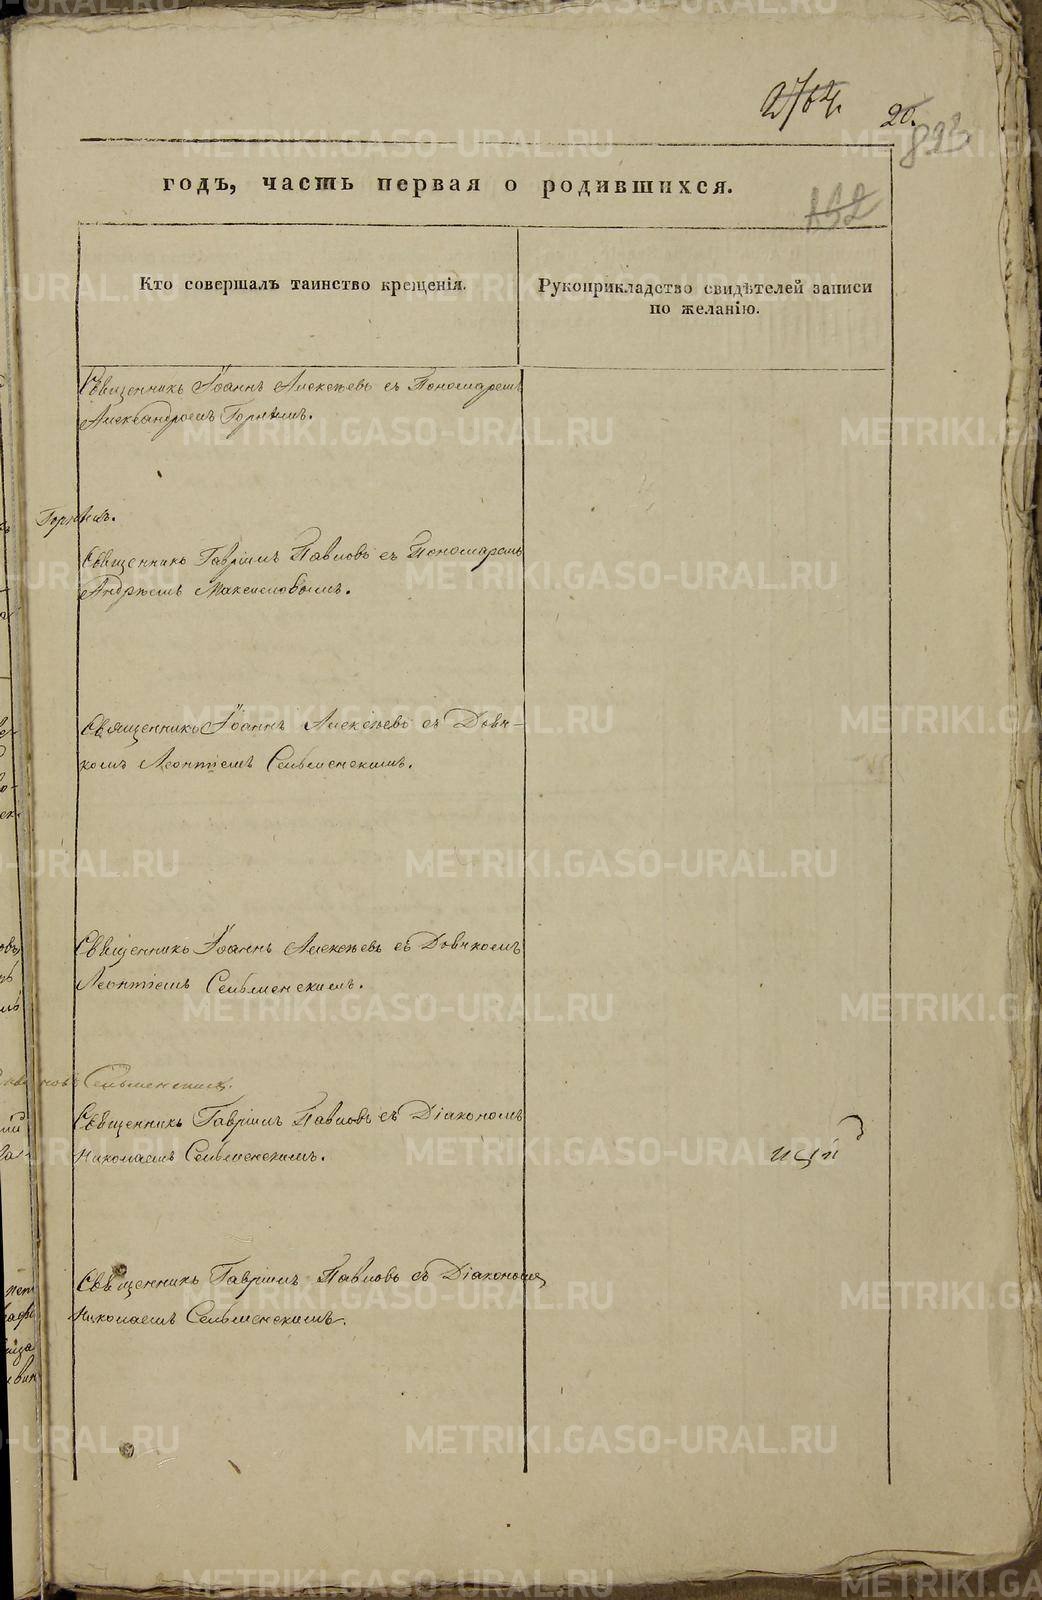 20.
132
годъ, часть первая о родившихся.
Кто совершалъ таинство крещенія.
Рукоприкладство свидѣтелей записи
по желанію.
Священникъ Іоаннъ Алексѣевъ съ Пономаремъ
Александромъ Горнымъ.
Священникъ Гавріилъ Павловъ съ Пономаремъ
Андреемъ Максимовымъ.
Священникъ Іоаннъ Алексѣевъ съ Дьяч-
комъ Леонтіемъ Сельменскимъ.
Священникъ Іоаннъ Алексѣевъ съ Дьячкомъ
Леонтіемъ Сельменскимъ.
Священникъ Гавріилъ Павловъ съ Діакономъ
Николаемъ Сельменскимъ.
Священникъ Гавріилъ Павловъ съ Діакономъ
Николаемъ Сельменскимъ.
METRIKI.GASO-URAL.RU